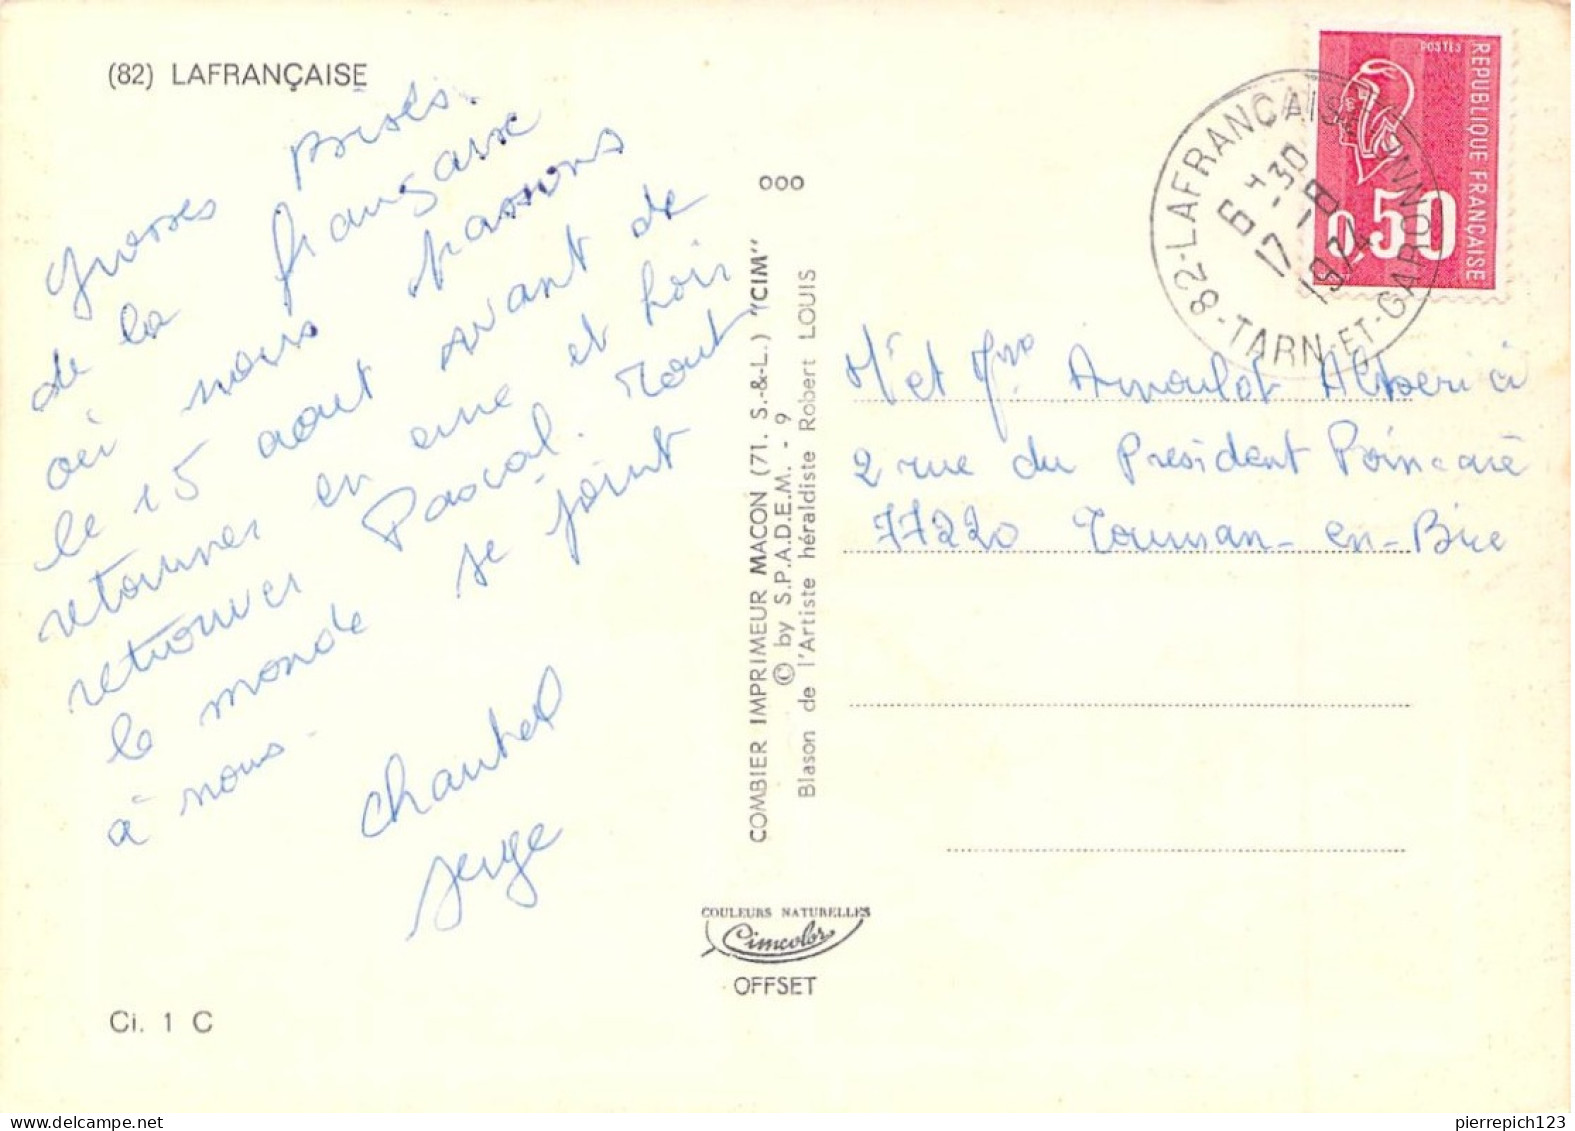 (82) LAFRANÇAISE
Grosses Bises.
de la française
où nous passons
le 15 aout avant de
retourner en         et
retrouver Pascal. Tout
le monde se joint
à nous.
Chantal
Serge
Ci. 1 C
000
COMBIER IMPRIMEUR MACON (71. S.-&-L.) "CIM"
© by S.P.A.D.E.M. - 9
Blason de l'Artiste héraldiste Robert LOUIS
COULEURS NATURELLES
Cimcolor
OFFSET
REPUBLIQUE FRANÇAISE
POSTES
0,50
82-LAFRANÇAISE
TARN-ET-GARONNE
6 H 30
17 -8
1974
Mr et Mme Arnoulot Alberici
2 rue du President Poincaré
77220 Tournan-en-Brie
pierrepich123